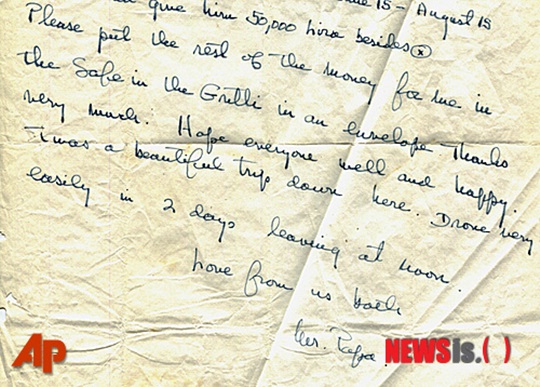 June 15 - August 15
give him 50,000 lira besides ⓧ
Please put the rest of the money for me in
the safe in the Gritti in an envelope Thanks
very much. Hope everyone well and happy.
It was a beautiful trip down here. Drove very
easily in 2 days leaving at noon.
Love from us both
Mr. Papa
AP
NEWSis.( )